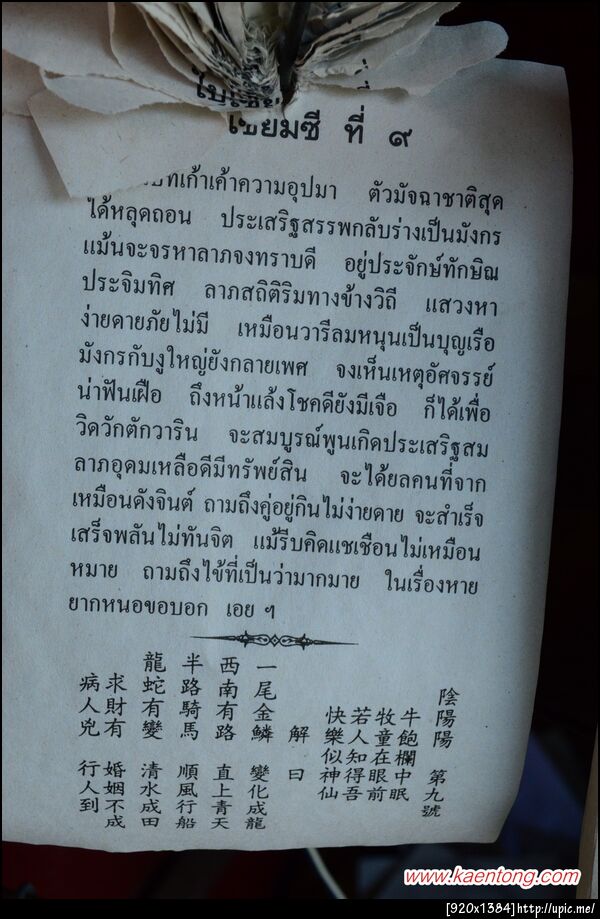 เซียมซี ที่ ๙
เก้าเค้าความอุปมา ตัวมัจฉาชาติสุด
ได้หลุดถอน ประเสริฐสรรพกลับร่างเป็นมังกร
แม้นจะจรหาลาภจงทราบดี อยู่ประจักษ์ทักษิณ
ประจิมทิศ ลาภสถิติริมทางข้างวิถี แสวงหา
ง่ายดายภัยไม่มี เหมือนวารีลมหนุนเป็นบุญเรือ
มังกรกับงูใหญ่ยังกลายเพศ จงเห็นเหตุอัศจรรย์
น่าฟันเฝือ ถึงหน้าแล้งโชคดียังมีเจือ ก็ได้เพื่อ
วิดวักตักวาริน จะสมบูรณ์พูนเกิดประเสริฐสม
ลาภอุดมเหลือดีมีทรัพย์สิน จะได้ยลคนที่จาก
เหมือนดังจินต์ ถามถึงคู่อยู่กินไม่ง่ายดาย จะสำเร็จ
เสร็จพลันไม่ทันจิต แม้รีบคิดแชเชือนไม่เหมือน
หมาย ถามถึงไข้ที่เป็นว่ามากมาย ในเรื่องหาย
ยากหนอขอบอก เอย ๆ
陰陽陽 第九號
牛飽欄中眠
牧童在眼前
若人知得吾
快樂似神仙
解曰
一尾金鱗 變化成龍
西南有路 直上青天
半路騎馬 順風行船
龍蛇有變 清水成田
求財有 婚姻不成
病人兇 行人到
www.kaentong.com
[920x1384]http://upic.me/